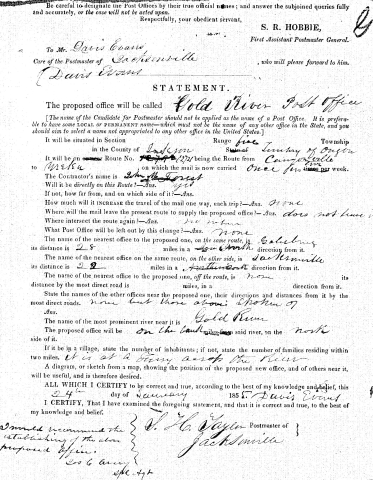 Be careful to designate Post Offices by their true official names; and answer the subjoined queries fully
and accurately, or the case will not be acted upon.
Respectfully, your obedient servant,
S. R. HOBBIE,
First Assistant Postmaster General.
To Mr. Davis Evans
Care of the Postmaster of Jacksonville, who will please forward to him.
(Davis Evans
STATEMENT.
The proposed office will be called Gold River Post Office
[The name of the Candidate for Postmaster should not be applied as the name of a Post Office. It is prefer-
able to have some LOCAL or PERMANENT name—which must not be the name of any other office in the State, and you
should aim to select a name not appropriated to any other office in the United States.]
It will be situated in Section Range five Township
in the County of Jackson Territory of Oregon
It will be on Route No. being the Route from Canyonville
to Wreka, on which the mail is now carried once per week.
The Contractor's name is
Will it be directly on this Route?—Ans. yes
If not, how far from, and on which side of it?—Ans.
How much will it INCREASE the travel of the mail one way, each trip?—Ans. none
Where will the mail leave the present route to supply the proposed office?—Ans. does not leave
Where intersect the route again?—Ans. no where
What Post Office will be left out by this change?—Ans. none
The name of the nearest office to the proposed one, on the same route, is
its distance is 28 miles in a direction from it.
The name of the nearest office on the same route, on the other side, is Jacksonville
its distance is miles in a direction from it.
The name of the nearest office to the proposed one, off the route, is non its
distance by the most direct road is miles, in a direction from it.
State the names of the other offices near the proposed one, their directions and distances from it by the
most direct roads. none but those above spoken of
Ans.
The name of the most prominent river near it is Gold River
The proposed office will be on the bank said river, on the north
side of it.
If it be in a village, state the number of inhabitants; if not, state the number of families residing within
two miles. it is at a Ferry across the River
A diagram, or sketch from a map, showing the position of the proposed new office, and of others near it,
will be useful, and is therefore desired.
ALL WHICH I CERTIFY to be correct and true, according to the best of my knowledge and belief, this
day of January 185 Davis Evans
I CERTIFY, That I have examined the foregoing statement, and that it is correct and true, to the best of
my knowledge and belief.
S. H. Taylor Postmaster of
Jacksonville
I would recommend the
establishing of the above
proposed office